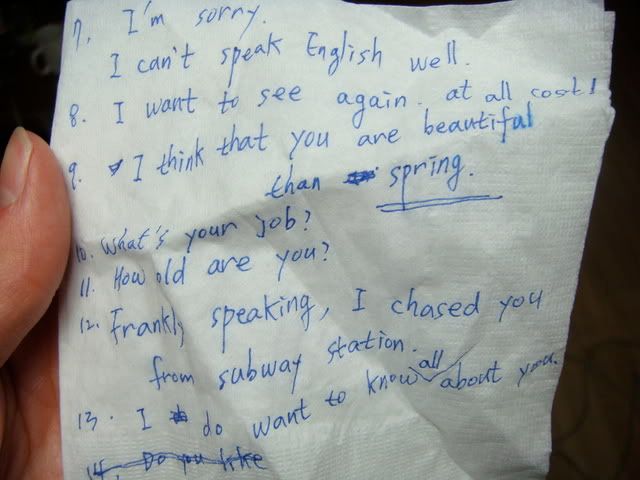 7, I'm sorry.
I can't speak English well.
8. I want to see again. at all cost!
9. I think that you are beautiful
than spring.
10. What's your job?
11. How old are you?
12. Frankly speaking, I chased you
from subway station.
13. I do want to know all about you.
14, Do you like